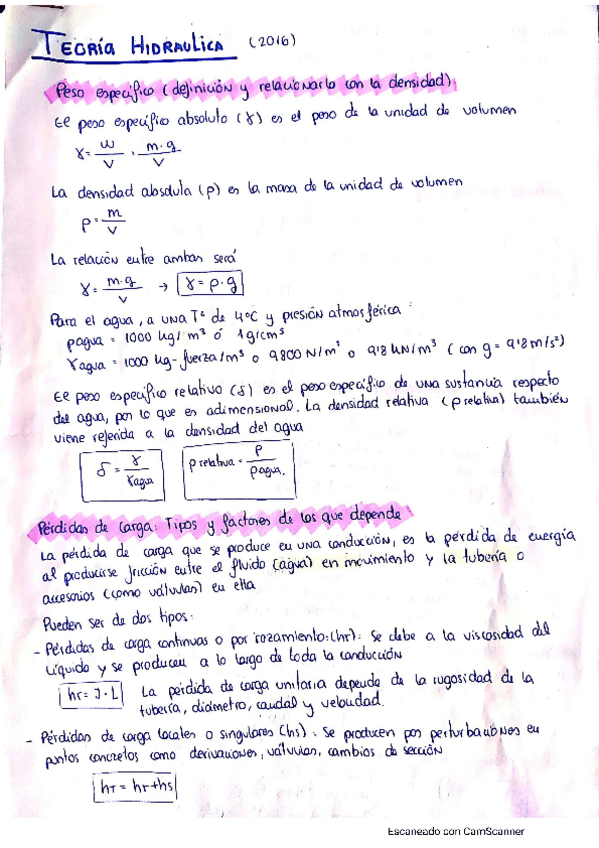 TEORÍA HIDRAULICA (2016)
Peso específico (definición y relacionarlo con la densidad)
El peso específico absoluto (γ) es el peso de la unidad de volumen
γ = w/v = m·g/v
La densidad absoluta (ρ) es la masa de la unidad de volumen
ρ = m/v
La relación entre ambas será
γ = m·g/v → γ = ρ·g
Para el agua, a una Tª de 4ºC y presión atmosférica:
ρagua = 1000 kg/m³ ó 1g/cm³
γagua = 1000 kg-fuerza/m³ o 9800 N/m³ o 9'8 kN/m³ (con g = 9'8 m/s²)
El peso específico relativo (δ) es el peso específico de una sustancia respecto
del agua, por lo que es adimensional. La densidad relativa (ρ relativa) también
viene referida a la densidad del agua
δ = γ/γagua ρ relativa = ρ/ρagua.
Pérdidas de carga: Tipos y factores de los que depende
La pérdida de carga que se produce en una conducción, es la pérdida de energía
al producirse fricción entre el fluido (agua) en movimiento y la tubería o
accesorios (como válvulas) en ella
Pueden ser de dos tipos:
- Pérdidas de carga continuas o por rozamiento: (hr): Se debe a la viscosidad del
líquido y se producen a lo largo de toda la conducción
hr = J·L La pérdida de carga unitaria depende de la rugosidad de la
tubería, diámetro, caudal y velocidad.
- Pérdidas de carga locales o singulares (hs): Se producen por perturbaciones en
puntos concretos como derivaciones, válvulas, cambios de sección
hT = hr+hs
Escaneado con CamScanner